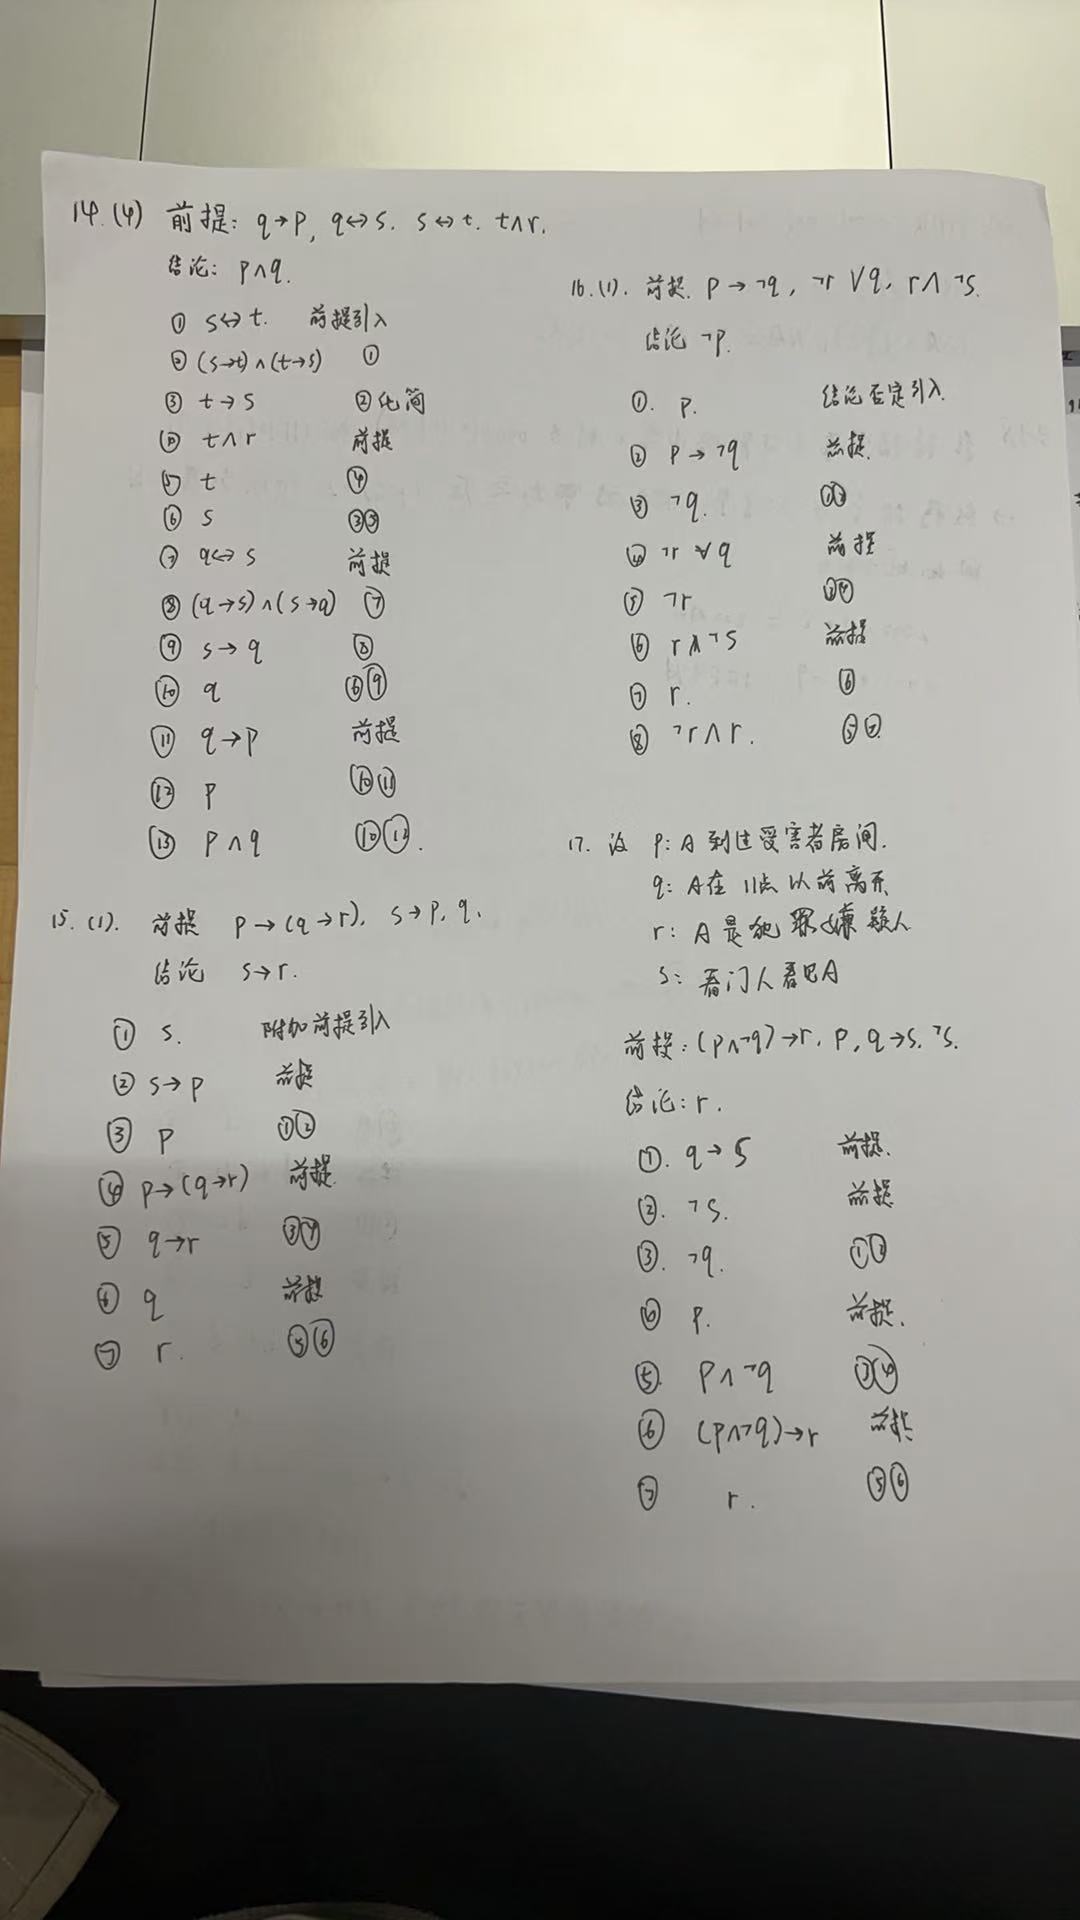 14.(4) 前提: q→p, q↔s. s↔t. t∧r.
结论: p∧q.
① s↔t. 前提引入
② (s→t)∧(t→s) ①
③ t→s ②化简
④ t∧r 前提
⑤ t ④
⑥ s ③⑤
⑦ q↔s 前提
⑧ (q→s)∧(s→q) ⑦
⑨ s→q ⑧
⑩ q ⑥⑨
⑪ q→p 前提
⑫ p ⑩⑪
⑬ p∧q ⑩⑫.
15.(1). 前提 p→(q→r), s→p, q.
结论 s→r.
① s. 附加前提引入
② s→p 前提
③ p ①②
④ p→(q→r) 前提.
⑤ q→r ③④
⑥ q 前提
⑦ r. ⑤⑥
16.(1). 前提. p→¬q, ¬r∨q, r∧¬s.
结论 ¬p.
①. p. 结论否定引入.
② p→¬q 前提.
③ ¬q. ①②
④ ¬r∨q 前提
⑤ ¬r ③④
⑥ r∧¬s 前提
⑦ r. ⑥
⑧ ¬r∧r. ⑤⑦
17. 设 p: A到过受害者房间.
q: A在11点以前离开
r: A是犯罪嫌疑人
s: 看门人看见A
前提: (p∧¬q)→r, p, q→s, ¬s.
结论: r.
①. q→s 前提.
②. ¬s. 前提
③. ¬q. ①②
④ p. 前提.
⑤. p∧¬q ③④
⑥ (p∧¬q)→r 前提
⑦ r. ⑤⑥